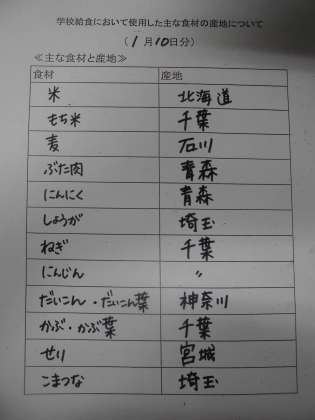 学校給食において使用した主な食材の産地について
（1月10日分）
≪主な食材と産地≫
食材 産地
米 北海道
もち米 千葉
麦 石川
ぶた肉 青森
にんにく 青森
しょうが 埼玉
ねぎ 千葉
にんじん 〃
だいこん・だいこん葉 神奈川
かぶ・かぶ葉 千葉
せり 宮城
こまつな 埼玉